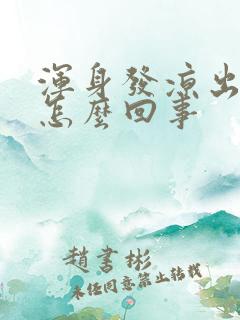 渾身發涼出
怎麼回事
趙書彬
未經同意禁止轉載